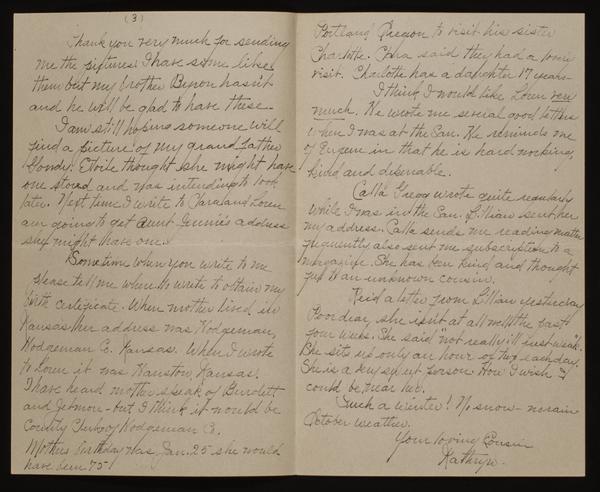 (3)
Thank you very much for sending
me the pictures. I have some like
them but my brother Byron hasn't
and he will be glad to have these.
I am still hoping someone will
find a picture of my grand father
Goudy. Etoile thought she might have
one stored and was intending to look
later. Next time I write to Sara and Loren
am going to get Aunt Jennie's address
she might have one.
Sometime when you write to me
please tell me where to write to obtain my
birth certificate. When mother lived in
Kansas her address was Hodgeman,
Hodgeman Co. Kansas. When I wrote
to Loren it was Hanston, Kansas.
I have heard mother speak of Burdett
and Jetmore - but I think it would be
County Clerk of Hodgeman Co.
Mothers birthday was Jan. 25 she would
have been 75!
Portland Oregon to visit his sister
Charlotte. Cora said they had a lovely
visit. Charlotte has a daughter 17 years.
I think I would like Loren very
much. He wrote me several good letters
when I was at the San. He reminds me
of Eugene in that he is hard working,
kind and desirable.
Calla Gregg wrote quite regularly
while I was in the San. Lillian sent her
my address. Calla sends me reading matter
frequently also sent me subscription to a
magazine. She has been kind and thought
ful to an unknown cousin.
Rec'd a letter from Lillian yesterday
Poor dear, she isn't at all well the past
four weeks. She said "not really ill just weak".
She sits up only an hour or two each day.
She is a very sweet person. How I wish I
could be near her.
Such a winter! No snow - no rain
October weather.
Your loving Cousin
Kathryn.